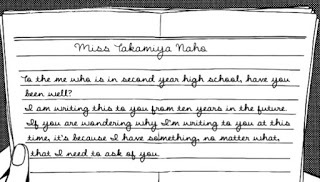 Miss Takamiya Naho
To the me who is in second year high school, have you
been well?
I am writing this to you from ten years in the future
If you are wondering why I'm writing to you at this
time, it's because I have something, no matter what,
that I need to ask of you.